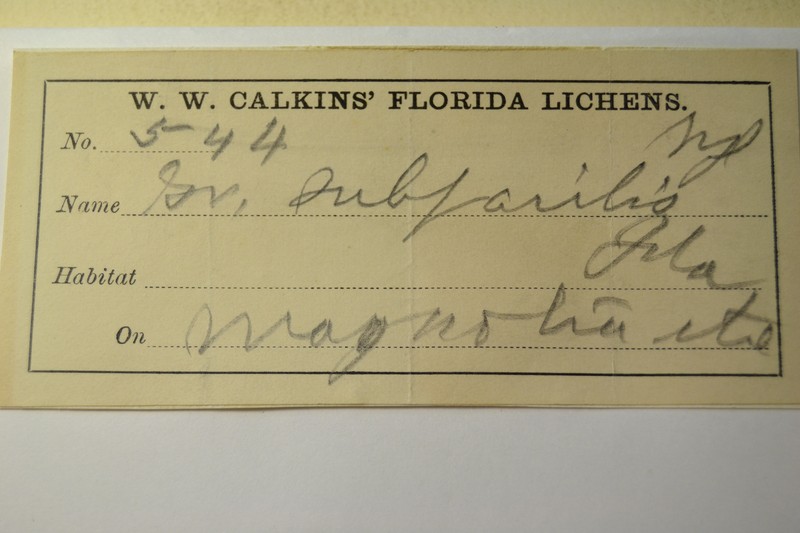 W. W. CALKINS' FLORIDA LICHENS.
No. 544 Nyl
Name Gr. subparilis
Habitat Fla
On Magnolia etc